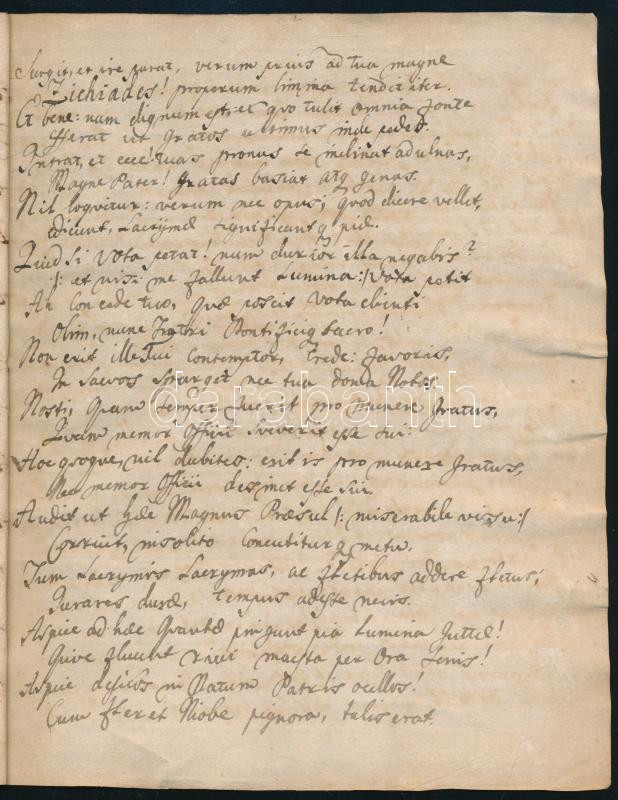 Surgit, et ire parat, verum prius ad tua magne
Zichiades! properum limina tendit iter.
Et bene: nam dignum est, et quo tulit omnia fonte
Fferat ut gratos ultimus inde pedes.
Intrat, et ecce! tuas pronus se inclinat ad ulnas,
Magne Pater! gratas basiat atq genas.
Nil loquitur: verum nec opus; quod dicere vellet,
edicunt, Lacrymæ significantq piæ.
Quid si vota petat! num durior illa negabis?
/: et nisi me fallunt Lumina:/ vota petit
Ah Concede tuo, quæ poscit vota clienti
Olim, nunc Fratri Pontificiq sacro!
Non erit ille Tui Contemptor, Crede: favoris,
In saevos sparget nec tua dona Notos.
Nosti, Quam semper fuerit pro munere gratus,
Quam memor Officii sueverit esse sui:
Hoc quoque, nil dubites: erit is pro munere gratus,
Nec memor Officii desinet esse sui.
Audit ut hæc Magnus Præsul /: miserabile visu:/
Corruit, insolito Concutiturq metu.
Tum Lacrymis Lacrymas, ac fletibus addere fletus;
Jurares duræ, tempus adesse necis.
Aspice ad hæc Quantæ pingunt pia Lumina Guttæ!
Quive fluunt rivi maesta per Ora senis!
Aspice defixos in Natum Patris ocellos!
Cum fleret Niobe pignora, talis erat.
darabanth